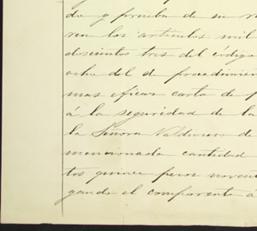 do y prueba de su re
ren los artículos mil
doscientos tres del código
ocho del d procedimien
mas eficaz carta de p
á la seguridad de la
la Señora Valderor de
mencionada cantidad
tos pesos noven
gando el comparente á